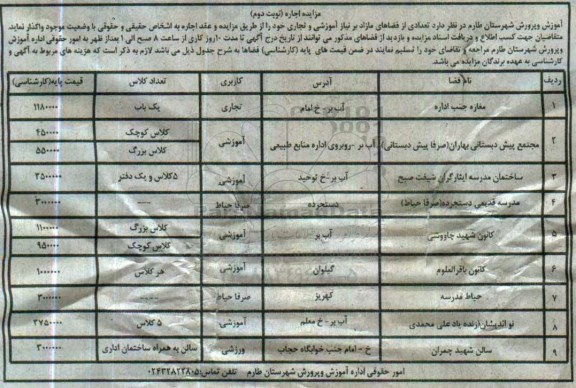 مزایده اجاره (نوبت دوم)
آموزش وپرورش شهرستان طارم در نظر دارد تعدادی از فضاهای مازاد بر نیاز آموزشی و تجاری خود را از طریق مزایده و عقد اجاره به اشخاص حقیقی و حقوقی با وضعیت موجود واگذار نماید.
متقاضیان جهت کسب اطلاع و دریافت اسناد مزایده و بازدید از فضاهای مذکور می توانند از تاریخ درج آگهی تا مدت ۱۰روز کاری از ساعت ۸ صبح الی ۱ بعداز ظهر به امور حقوقی اداره آموزش
وپرورش شهرستان طارم مراجعه و تقاضای خود را تسلیم نمایند در ضمن قیمت های پایه (کارشناسی) فضاها به شرح جدول ذیل می باشد لازم به ذکر است که هزینه های مربوط به آگهی و
کارشناسی به عهده برندگان مزایده می باشد.
ردیف نام فضا آدرس کاربری تعداد کلاس قیمت پایه(کارشناسی)
۱ مغازه جنب اداره آب بر - خ امام تجاری یک باب ۱۱۸۰۰۰۰
۲ مجتمع پیش دبستانی بهاران(صرفا پیش دبستانی) آب بر -روبروی اداره منابع طبیعی آموزشی کلاس کوچک ۴۵۰۰۰۰
کلاس بزرگ ۵۵۰۰۰۰
۳ ساختمان مدرسه ایثارگران شیفت صبح آب بر-خ توحید آموزشی ۵کلاس و یک دفتر ۲۵۰۰۰۰۰
۴ مدرسه قدیمی دستجرده(صرفا حیاط) دستجرده صرفا حیاط ---- ۳۰۰۰۰۰۰
۵ کانون شهید چاووشی آب بر آموزشی کلاس بزرگ ۱۱۰۰۰۰۰
کلاس کوچک ۹۵۰۰۰۰
۶ کانون باقرالعلوم گیلوان آموزشی هر کلاس ۱۰۰۰۰۰۰
۷ حیاط مدرسه کهریز صرفا حیاط ---- ۳۰۰۰۰۰۰
۸ نو اندیشان(زنده یاد علی محمدی آب بر - خ معلم آموزشی ۵ کلاس ۳۷۵۰۰۰۰
۹ سالن شهید چمران خ - امام جنب خوابگاه حجاب ورزشی سالن به همراه ساختمان اداری ۳۰۰۰۰۰۰
امور حقوقی اداره آموزش وپرورش شهرستان طارم تلفن تماس:۰۲۴۳۲۸۲۳۸۰۵